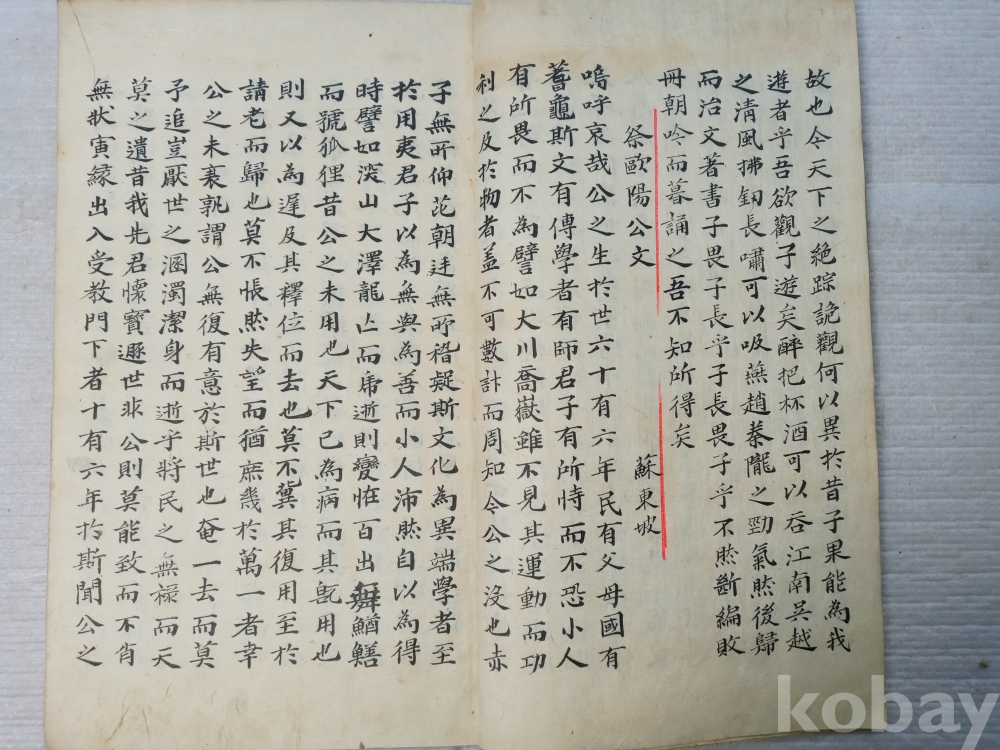 故也今天下之絶踪詭觀何以異於昔子果能為我
遊者乎吾欲觀子遊矣醉把杯酒可以吞江南吳越
之清風拂釼長嘯可以吸燕趙秦隴之勁氣然後歸
而治文著書子畏子長乎子長畏子乎不然斷編敗
冊朝吟而暮誦之吾不知所得矣
祭歐陽公文 蘇東坡
嗚呼哀哉公之生於世六十有六年民有父母國有
蓍龜斯文有傳學者有師君子有所恃而不恐小人
有所畏而不為譬如大川喬嶽雖不見其運動而功
利之及於物者盖不可數計而周知今公之沒也赤
子無所仰芘朝廷無所稽疑斯文化為異端學者至
於用夷君子以為無與為善而小人沛然自以為得
時譬如深山大澤龍亡而虎逝則變恠百出舞鰌鱔
而號狐狸昔公之未用也天下已為病而其旣用也
則又以為遲及其釋位而去也莫不冀其復用至於
請老而歸也莫不悵然失望而猶庶幾於萬一者幸
公之未衰孰謂公無復有意於斯世也奄一去而莫
予追豈厭世之溷濁潔身而逝乎將民之無祿而天
莫之遺昔我先君懷寶遯世非公則莫能致而不肖
無狀寅緣出入受教門下者十有六年於斯聞公之
kobay